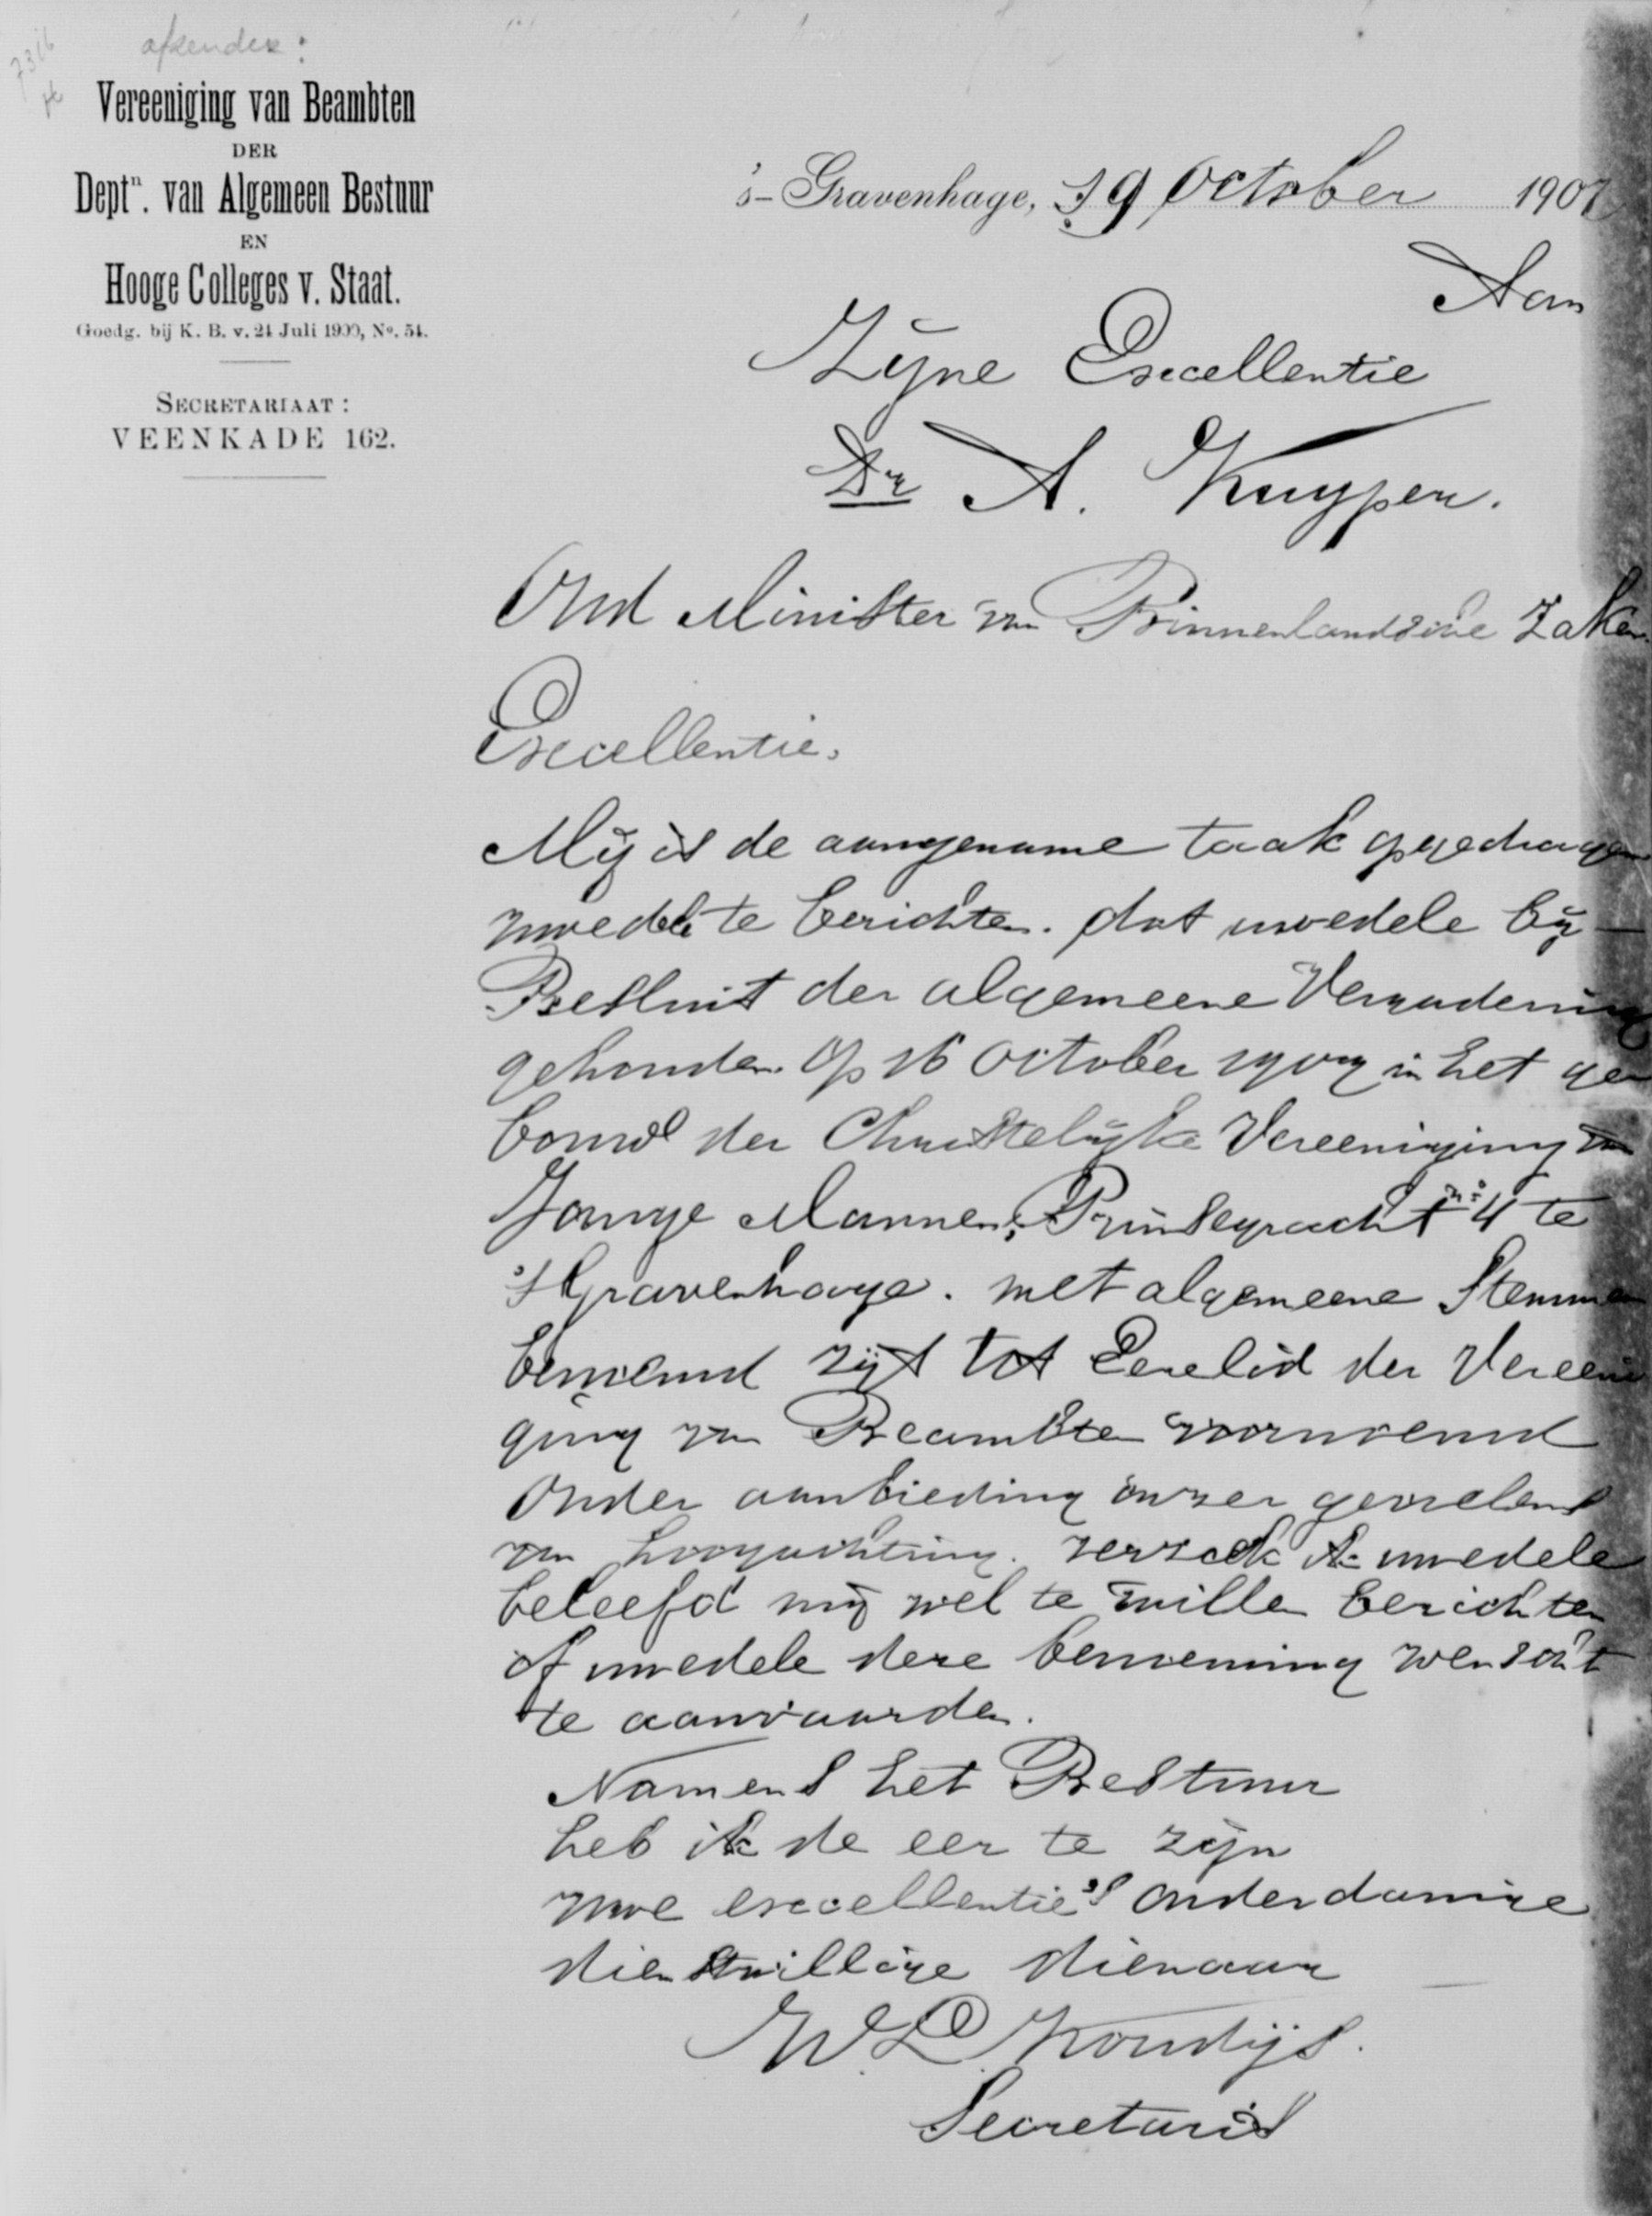 afzender:
Vereeniging van Beambten
DER
Dept<sup>n</sup>. van Algemeen Bestuur
EN
Hooge Colleges v. Staat.
Goedg. bij K. B. v. 24 Juli 1900, No. 54.
SECRETARIAAT:
VEENKADE 162.
's-Gravenhage, 19 October 1907
Aan
Zijne Excellentie
Dr A. Kuyper.
Oud Minister van Binnenlandsche Zaken
Excellentie,
Mij is de aangename taak opgedragen
uwedele te berichten. dat uwedele bij
Besluit der algemeene Vergadering
gehouden op 16 October 1907 in het ge
bouw der Christelijke Vereeniging van
Jonge Mannen, Prinsegracht no 4 te
'sGravenhage. met algemeene Stemmen
benoemd zijt tot Eerelid der Vereeni
ging van Beambten voornoemd
Onder aanbieding onzer gevoelens
van hoogachting. verzoek ik uwedele
beleefd mij wel te willen berichten
of uwedele deze benoeming wenscht
te aanvaarden.
Namens het Bestuur
heb ik de eer te zijn
uwe excellentie's onderdanige
dienstwillige dienaar
W.L. Kondijs.
Secretaris